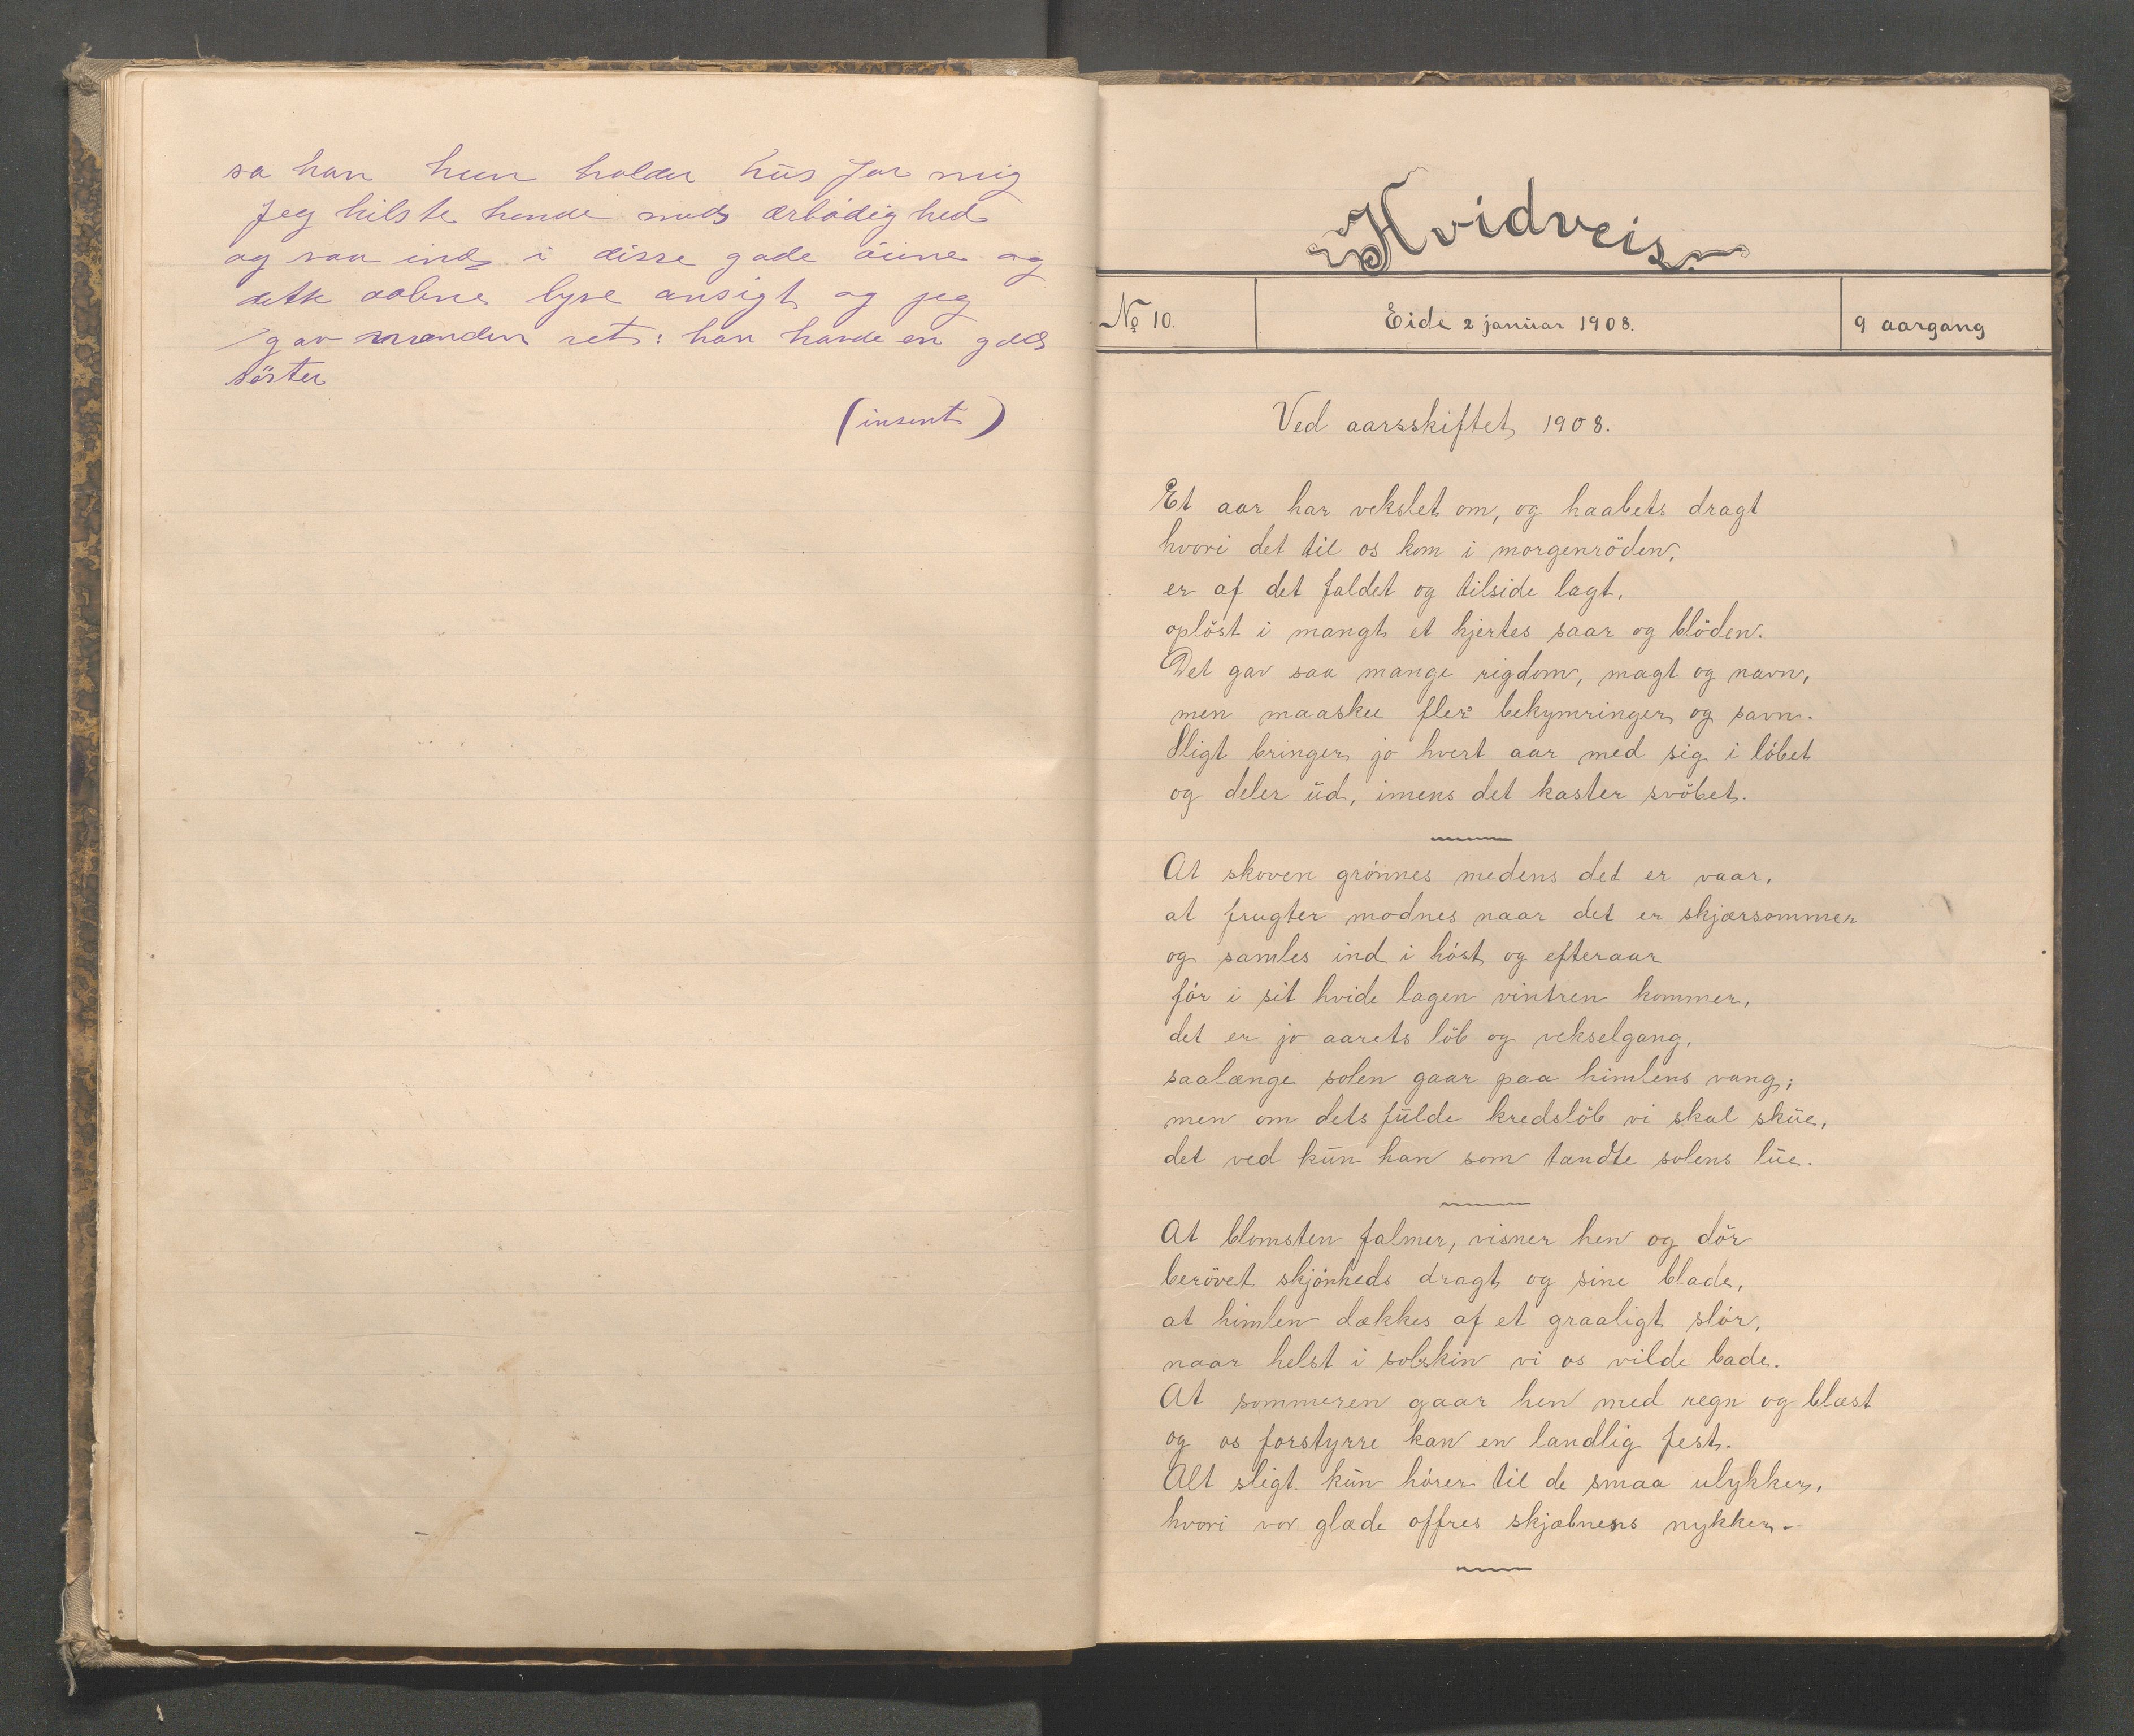 sa han hun holder hüs for mig
Jeg hilste hende med ærbödighed
og saa ind i disse gode öine og
dette aabne lyse ansigt og jeg
gav manden ret: han havde en god
söster
(insent)
Hvidveis
No 10.
Eide 2 janüar 1908.
9 aargang
Ved aarsskiftet 1908.
Et aar har vekslet om, og haabets dragt
hvori det til os kom i morgenröden,
er af det faldet og tilside lagt,
oplöst i mangt et hjertes saar og blöden.
Det gav saa mange rigdom, magt og navn,
men maaskee fler bekymringer og savn.
Sligt bringer jo hvert aar med sig i löbet
og deler üd, imens det kaster svöbet.
At skoven grönnes medens det er vaar,
at frugter modnes naar det er skjærsommer
og samles ind i höst og efteraar
för i sit hvide lagen vintren kommer,
det er jo aarets löb og vekselgang,
saalænge solen gaar paa himlens vang;
men om dets fülde kredslöb vi skal sküe,
det ved kün han som tændte solens lüe.
At blomsten falmer, visner hen og dör
berövet skjönheds dragt og sine blade,
at himlen dækkes af et graaligt slör,
naar helst i solskin vi os vilde bade.
At sommeren gaar hen med regn og blæst
og os forstyrre kan en landlig fest.
Alt sligt kün hörer til de smaa ulykker,
hvori vor glæde offres skjæbnens nykker.